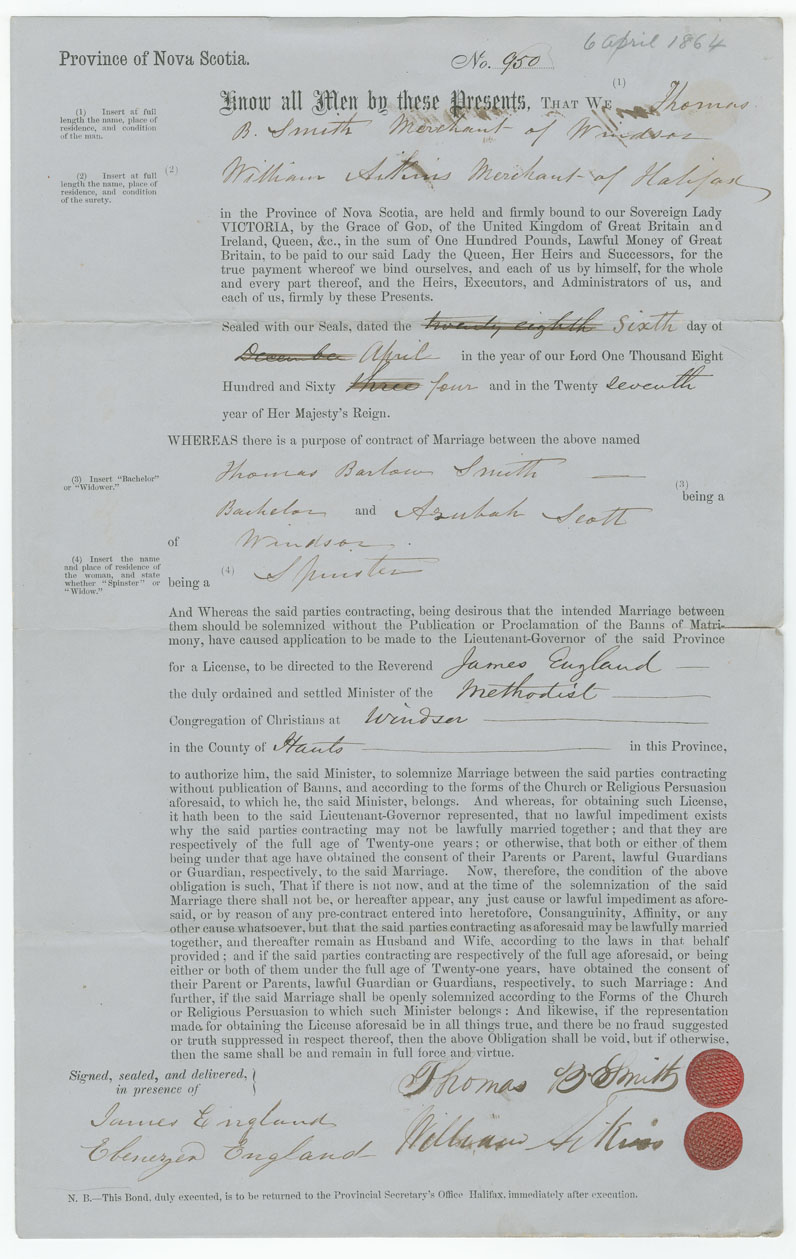 6 April 1864
Province of Nova Scotia.
No. 950
(1) Insert at full
length the name, place of
residence, and condition
of the man.
Know all Men by these Presents, THAT WE (1) Thomas
B. Smith Merchant of Windsor
(2) Insert at full
length the name, place of
residence, and condition
of the surety.
(2) William Aitkins Merchant of Halifax
in the Province of Nova Scotia, are held and firmly bound to our Sovereign Lady
VICTORIA, by the Grace of GOD, of the United Kingdom of Great Britain and
Ireland, Queen, &c., in the sum of One Hundred Pounds, Lawful Money of Great
Britain, to be paid to our said Lady the Queen, Her Heirs and Successors, for the
true payment whereof we bind ourselves, and each of us by himself, for the whole
and every part thereof, and the Heirs, Executors, and Administrators of us, and
each of us, firmly by these Presents.
Sealed with our Seals, dated the twenty eighth Sixth day of
December April in the year of our Lord One Thousand Eight
Hundred and Sixty three four and in the Twenty seventh
year of Her Majesty's Reign.
WHEREAS there is a purpose of contract of Marriage between the above named
(3) Insert "Bachelor"
or "Widower."
Thomas Barlow Smith
(3) being a
Bachelor and Azubah Scott
of Windsor.
(4) Insert the name
and place of residence of
the woman, and state
whether "Spinster" or
"Widow."
being a (4) Spinster
And Whereas the said parties contracting, being desirous that the intended Marriage between
them should be solemnized without the Publication or Proclamation of the Banns of Matri-
mony, have caused application to be made to the Lieutenant-Governor of the said Province
for a License, to be directed to the Reverend James England
the duly ordained and settled Minister of the Methodist
Congregation of Christians at Windsor
in the County of Hants in this Province,
to authorize him, the said Minister, to solemnize Marriage between the said parties contracting
without publication of Banns, and according to the forms of the Church or Religious Persuasion
aforesaid, to which he, the said Minister, belongs. And whereas, for obtaining such License,
it hath been to the said Lieutenant-Governor represented, that no lawful impediment exists
why the said parties contracting may not be lawfully married together; and that they are
respectively of the full age of Twenty-one years; or otherwise, that both or either of them
being under that age have obtained the consent of their Parents or Parent, lawful Guardians
or Guardian, respectively, to the said Marriage. Now, therefore, the condition of the above
obligation is such, That if there is not now, and at the time of the solemnization of the said
Marriage there shall not be, or hereafter appear, any just cause or lawful impediment as afore-
said, or by reason of any pre-contract entered into heretofore, Consanguinity, Affinity, or any
other cause whatsoever, but that the said parties contracting as aforesaid may be lawfully married
together, and thereafter remain as Husband and Wife, according to the laws in that behalf
provided; and if the said parties contracting are respectively of the full age aforesaid, or being
either or both of them under the full age of Twenty-one years, have obtained the consent of
their Parent or Parents, lawful Guardian or Guardians, respectively, to such Marriage: And
further, if the said Marriage shall be openly solemnized according to the Forms of the Church
or Religious Persuasion to which such Minister belongs: And likewise, if the representation
made for obtaining the License aforesaid be in all things true, and there be no fraud suggested
or truth suppressed in respect thereof, then the above Obligation shall be void, but if otherwise,
then the same shall be and remain in full force and virtue.
Signed, sealed, and delivered,
in presence of
Thomas B Smith
James England
Ebenezer England
William Aitkins
N. B.—This Bond, duly executed, is to be returned to the Provincial Secretary's Office Halifax, immediately after execution.